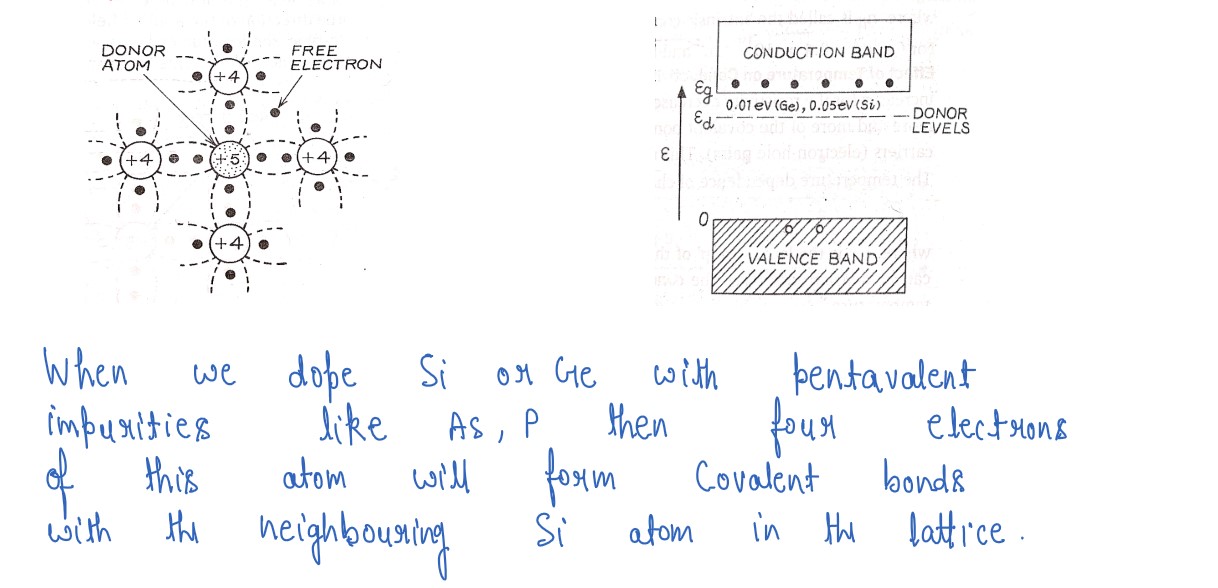 DONOR
ATOM
FREE
ELECTRON
+4
+4
+5
+4
+4
CONDUCTION BAND
εg
0.01eV(Ge), 0.05eV(Si)
εd
DONOR
LEVELS
ε
0
VALENCE BAND
When we dope Si or Ge with pentavalent
impurities like As, P then four electrons
of this atom will form Covalent bonds
with the neighbouring Si atom in the lattice.